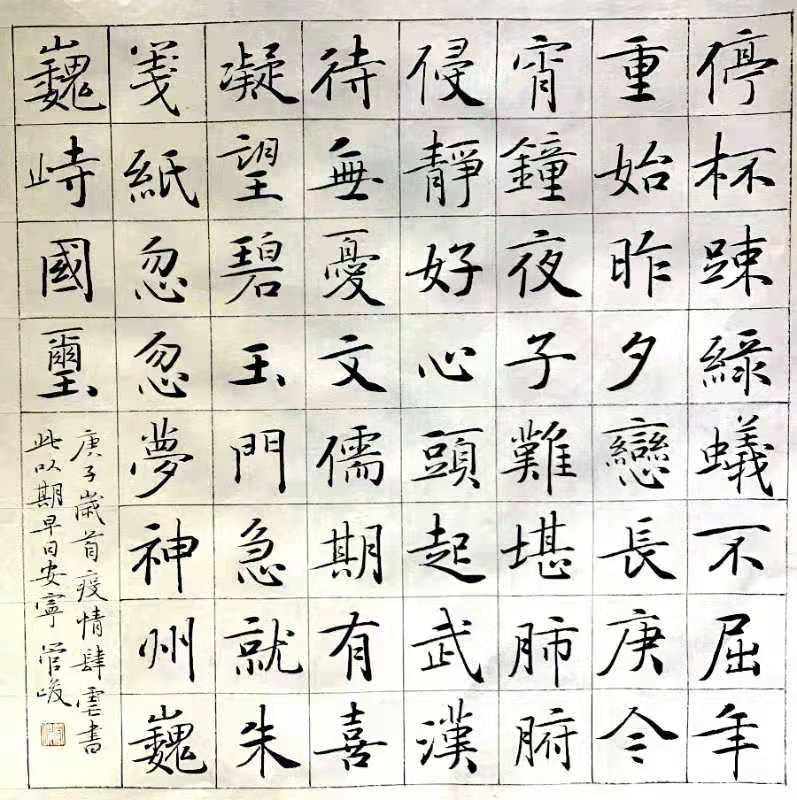 停杯踈綠蟻不屈年
重始昨夕戀長庚今
宵鐘夜子難堪肺腑
侵靜好心頭起武漢
待無憂文儒期有喜
凝望碧玉門急就朱
箋紙忽忽夢神州巍
巍峙國璽
庚子歲首疫情肆虐書
此以期早日安寧 管峻